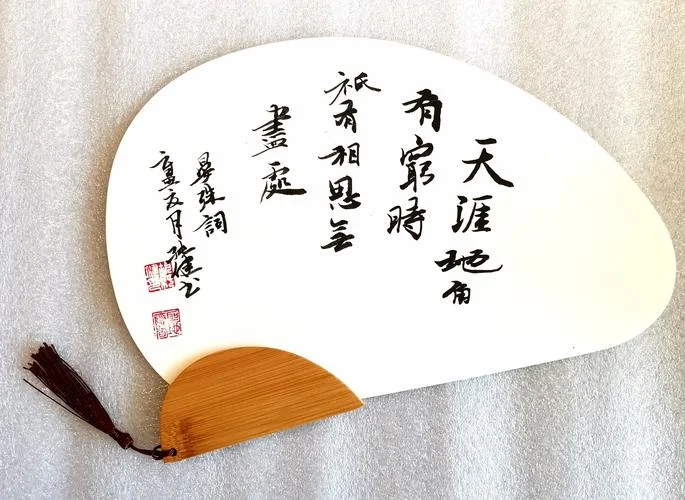 天涯地角
有窮時
祇有相思無
盡處
晏殊詞
辛丑月书